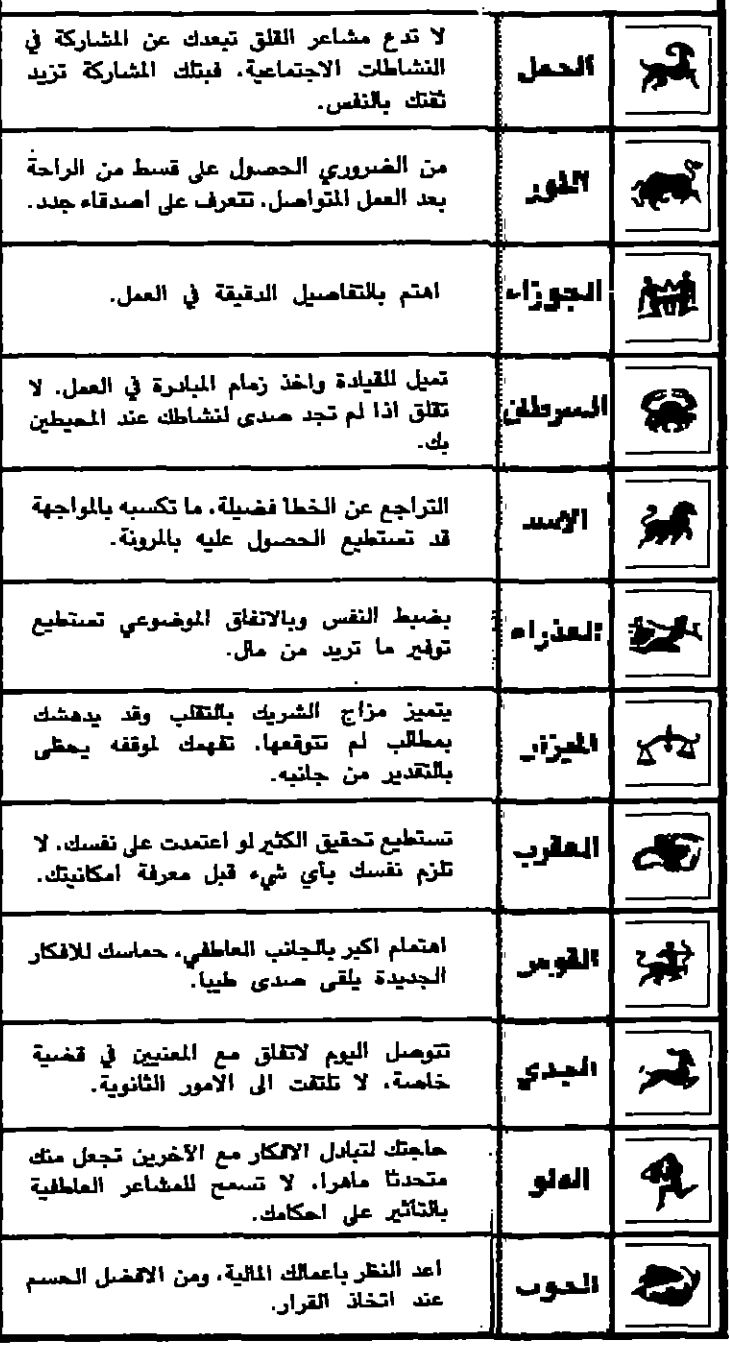 الحمل
لا تدع مشاعر القلق تبعدك عن المشاركة في
النشاطات الاجتماعية، فبتلك المشاركة تزيد
ثقتك بالنفس.
الثور
من الضروري الحصول على قسط من الراحة
بعد العمل المتواصل. تتعرف على اصدقاء جدد.
الجوزاء
اهتم بالتفاصيل الدقيقة في العمل.
السرطان
تميل للقيادة واخذ زمام المبادرة في العمل. لا
تقلق اذا لم تجد صدى لنشاطك عند المحيطين
بك.
الأسد
التراجع عن الخطا فضيلة، ما تكسبه بالمواجهة
قد تستطيع الحصول عليه بالمرونة.
العذراء
بضبط النفس وبالاتفاق الموضوعي تستطيع
توفير ما تريد من مال.
الميزان
يتميز مزاج الشريك بالتقلب وقد يدهشك
بمطالب لم تتوقعها. تفهمك لموقفه يحظى
بالتقدير من جانبه.
العقرب
تستطيع تحقيق الكثير لو اعتمدت على نفسك. لا
تلزم نفسك بأي شيء قبل معرفة امكانيتك.
القوس
اهتمام اكبر بالجانب العاطفي، حماسك للافكار
الجديدة يلقى صدى طيبا.
الجدي
تتوصل اليوم لاتفاق مع المعنيين في قضية
خاصة، لا تلتفت الى الامور الثانوية.
الدلو
حاجتك لتبادل الافكار مع الآخرين تجعل منك
متحدثا ماهرا. لا تسمح للمشاعر العاطفية
بالتأثير على احكامك.
الحوت
اعد النظر باعمالك المالية، ومن الافضل الحسم
عند اتخاذ القرار.